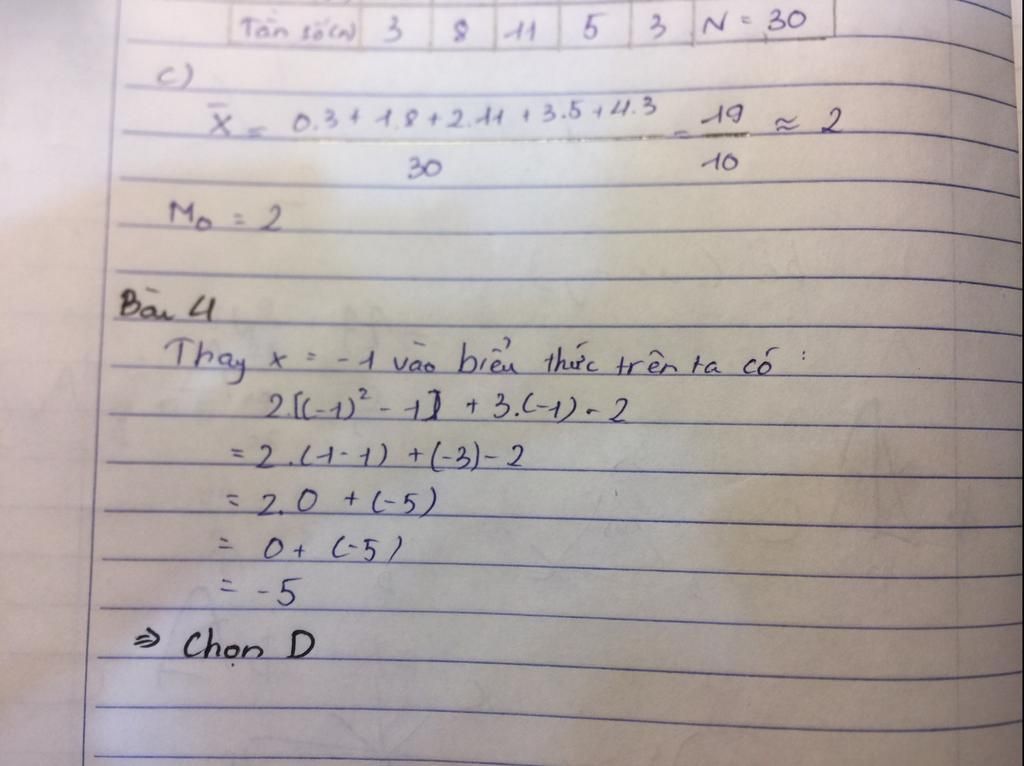 Tần số(n) 3 8 11 5 3 N = 30
c)
X̄ = 0.3 + 1.8 + 2.11 + 3.5 + 4.3 / 30 = 19/10 ≈ 2
M₀ = 2
Bài 4
Thay x = -1 vào biểu thức trên ta có :
2.[(-1)² - 1] + 3.(-1) - 2
= 2.(1-1) + (-3) - 2
= 2.0 + (-5)
= 0 + (-5)
= -5
⇒ Chọn D